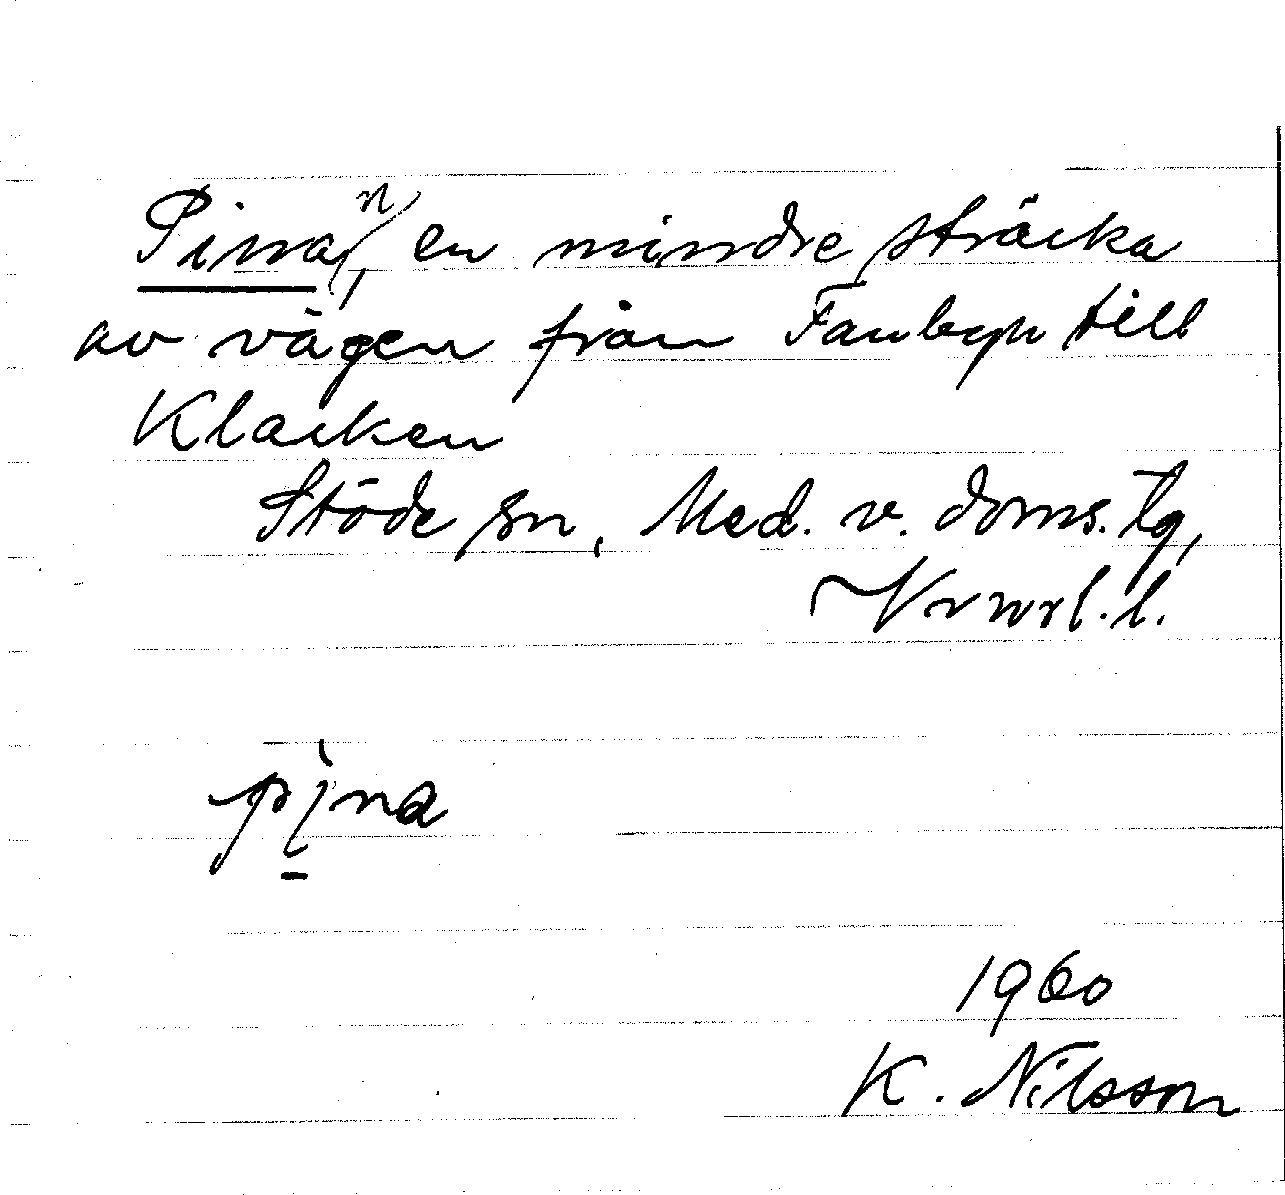 Pinan, en mindre sträcka
av vägen från Fanbyn till
Klacken
Stöde sn, Med. v. doms. tg,
Vrnrl. l.
pina
1960
K. Nilsson